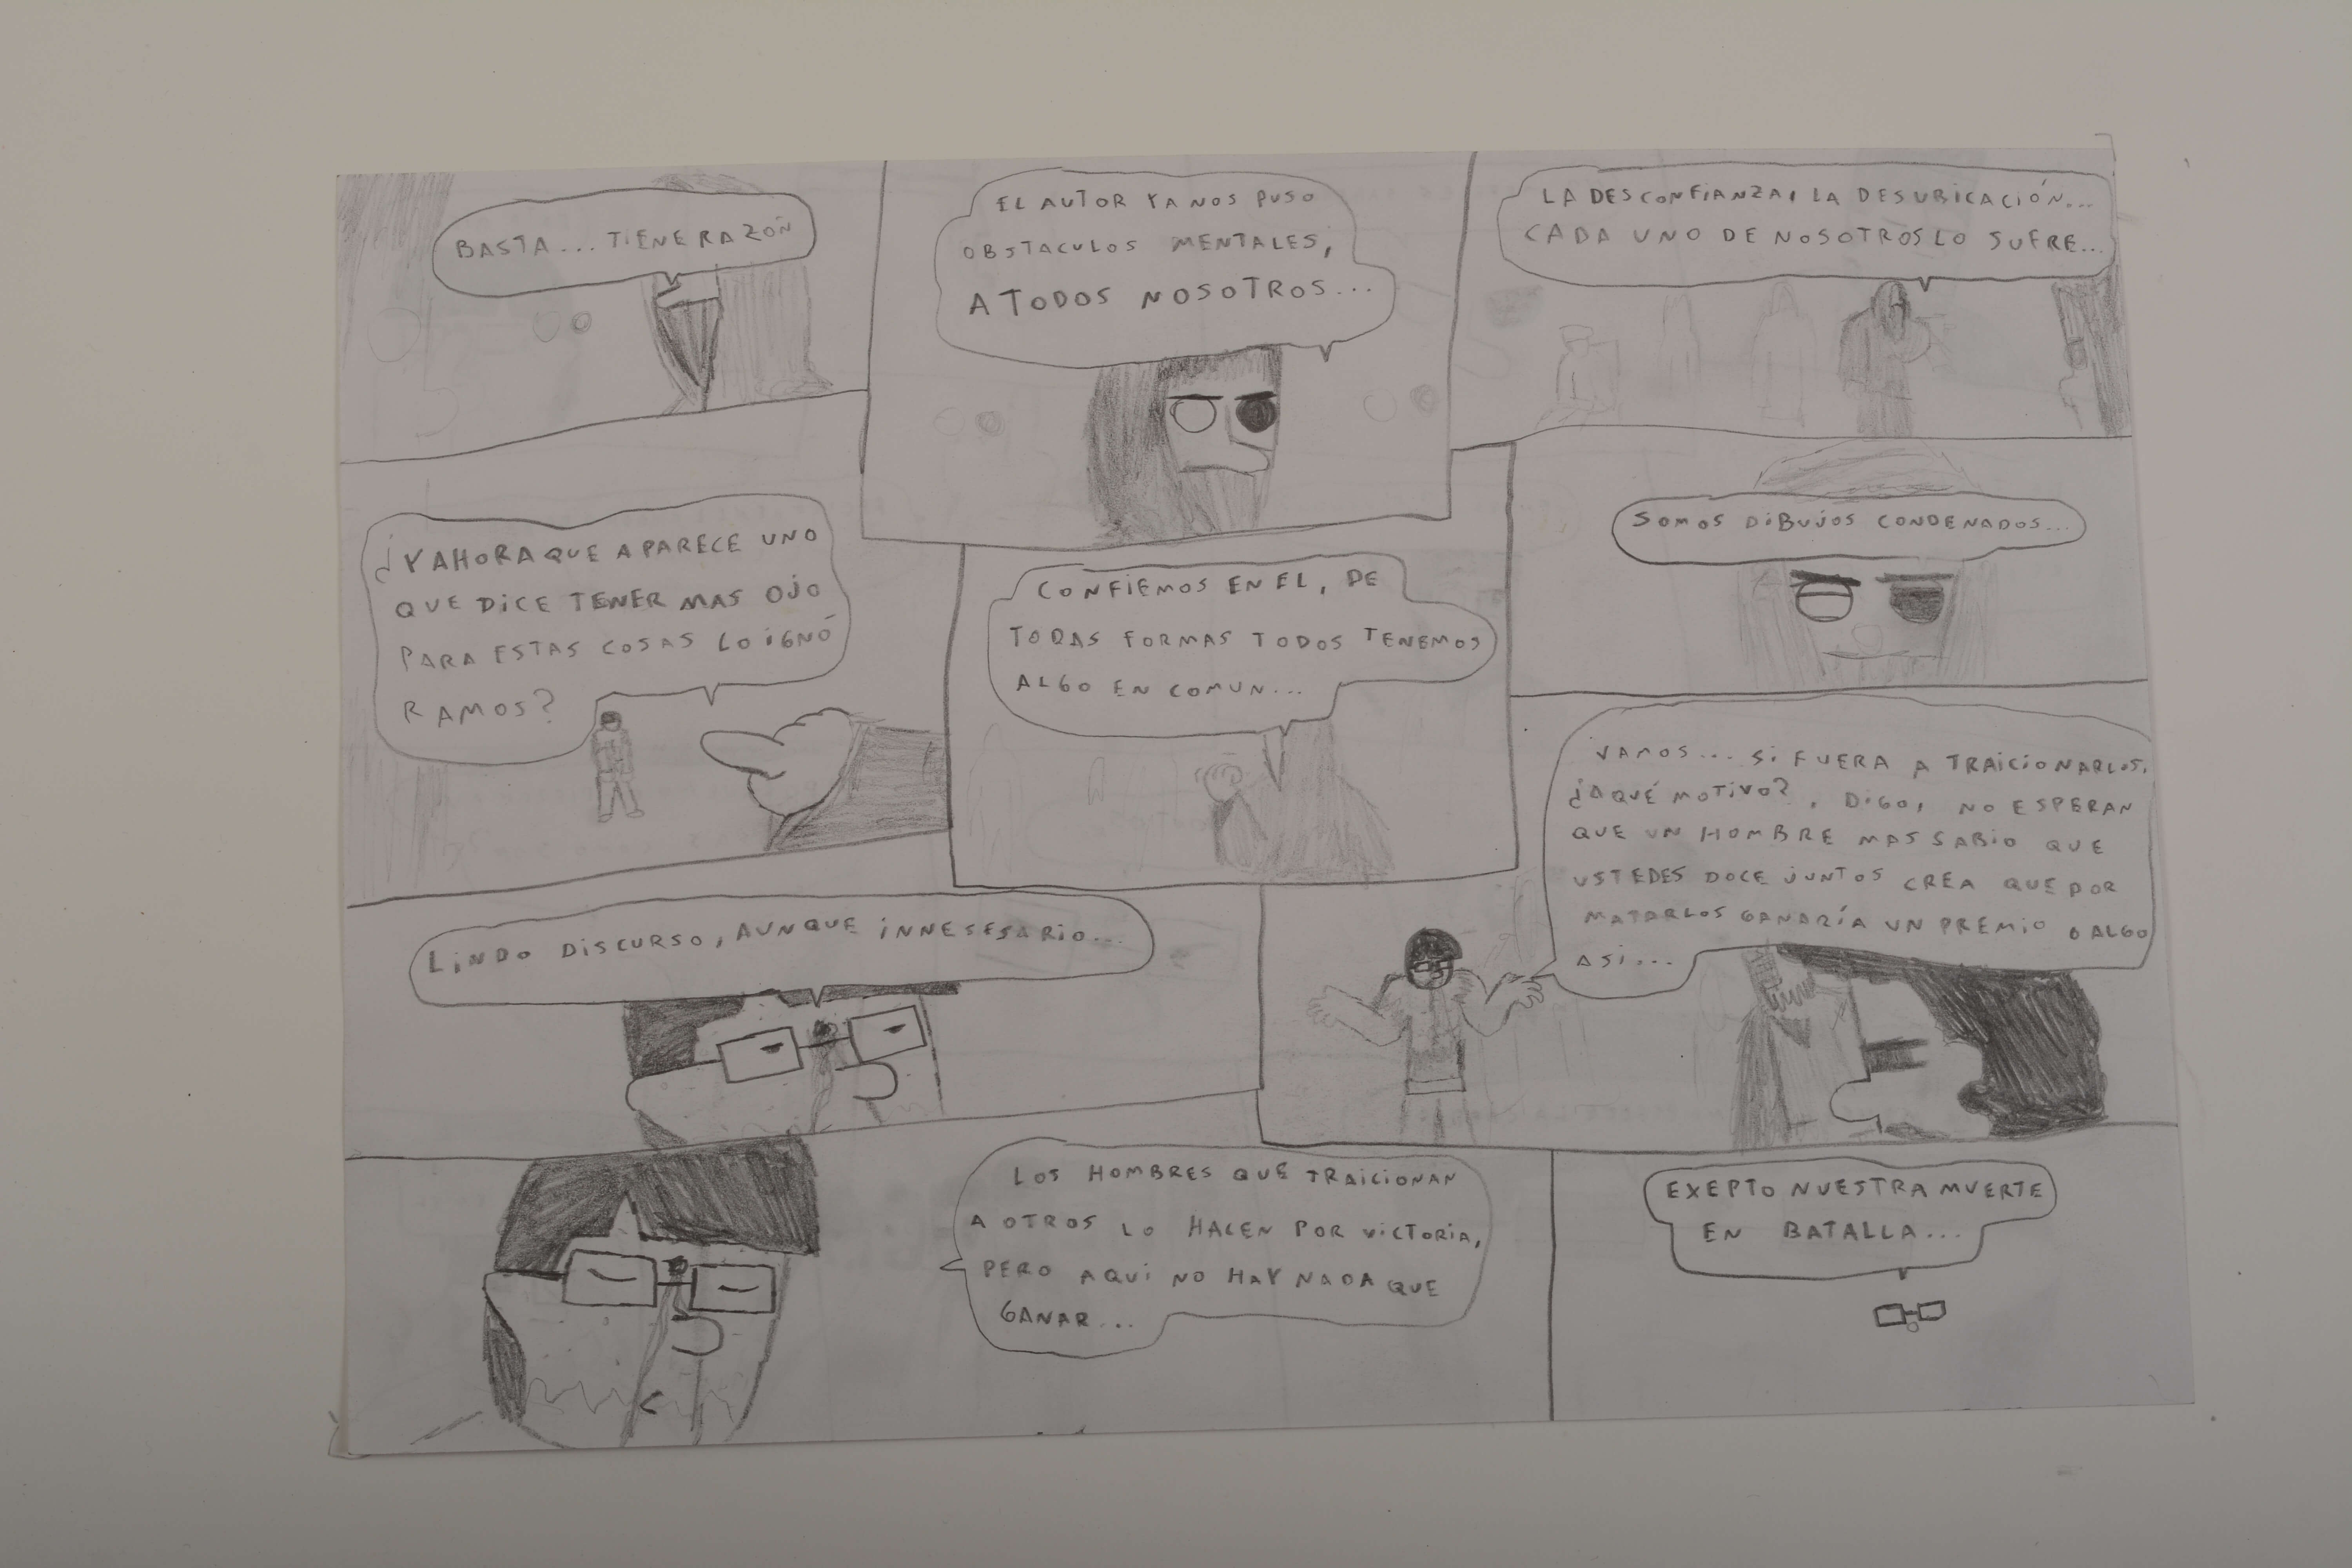 BASTA... TIENE RAZÓN
EL AUTOR YA NOS PUSO
OBSTACULOS MENTALES,
A TODOS NOSOTROS...
LA DESCONFIANZA, LA DESUBICACIÓN...
CADA UNO DE NOSOTROS LO SUFRE...
¿Y AHORA QUE APARECE UNO
QUE DICE TENER MAS OJO
PARA ESTAS COSAS LO IGNÓ
RAMOS?
CONFIEMOS EN EL, DE
TODAS FORMAS TODOS TENEMOS
ALGO EN COMUN...
SOMOS DIBUJOS CONDENADOS...
LINDO DISCURSO, AUNQUE INNESESARIO...
VAMOS... SI FUERA A TRAICIONARLOS,
¿A QUÉ MOTIVO?, DIGO, NO ESPERAN
QUE UN HOMBRE MAS SABIO QUE
USTEDES DOCE JUNTOS CREA QUE POR
MATARLOS GANARÍA UN PREMIO O ALGO
ASI...
LOS HOMBRES QUE TRAICIONAN
A OTROS LO HACEN POR VICTORIA,
PERO AQUI NO HAY NADA QUE
GANAR...
EXEPTO NUESTRA MUERTE
EN BATALLA...